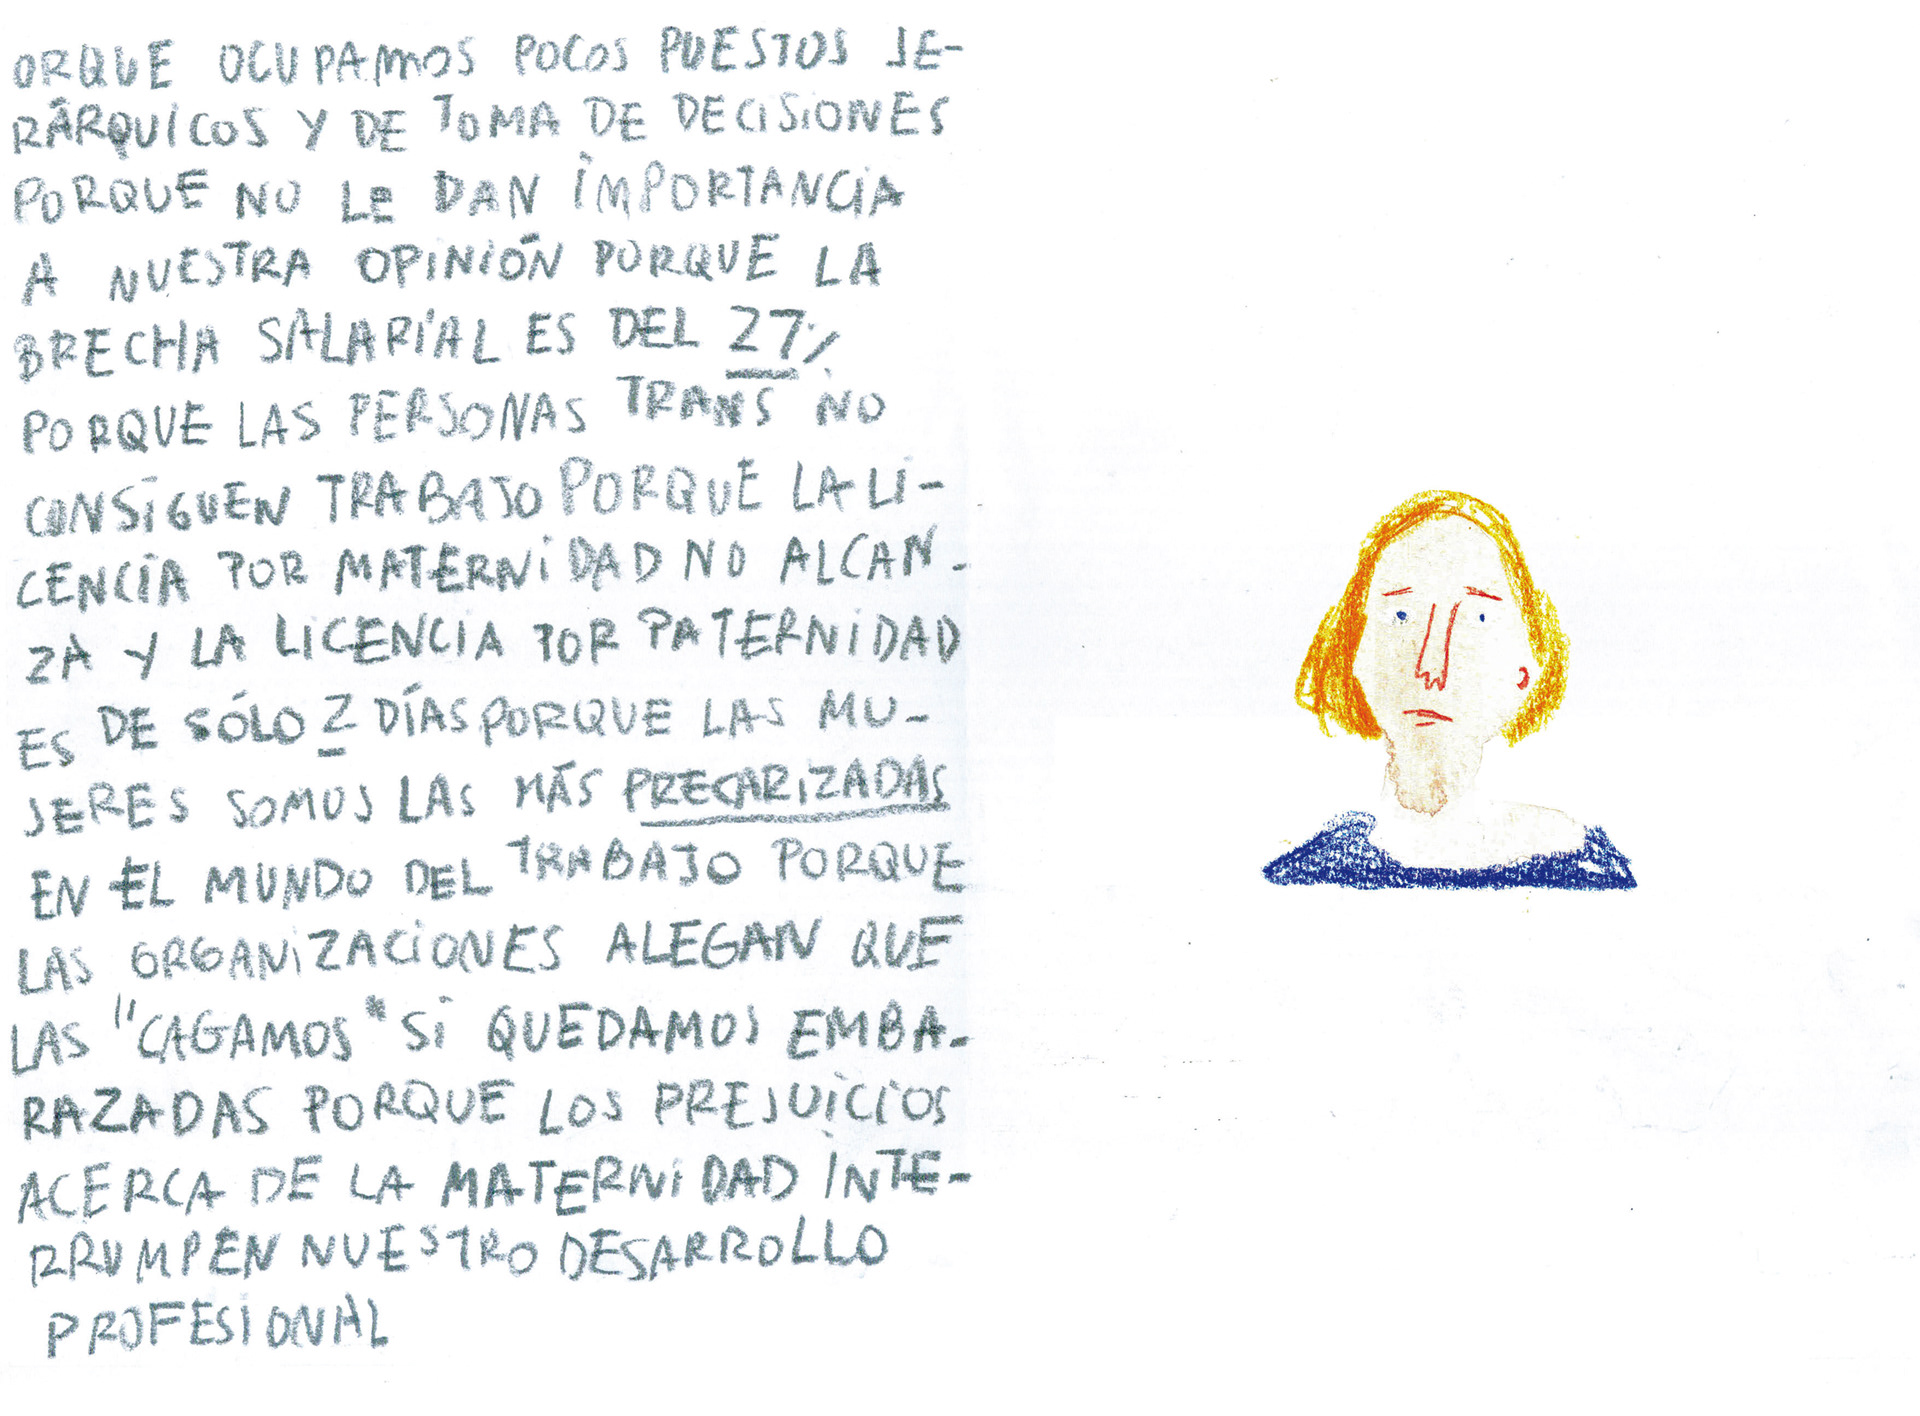 ORQUE OCUPAMOS POCOS PUESTOS JE-
RÁRQUICOS Y DE TOMA DE DECISIONES
PORQUE NO LE DAN IMPORTANCIA
A NUESTRA OPINIÓN PORQUE LA
BRECHA SALARIAL ES DEL 27%
PORQUE LAS PERSONAS TRANS NO
CONSIGUEN TRABAJO PORQUE LA LI-
CENCIA POR MATERNIDAD NO ALCAN-
ZA Y LA LICENCIA POR PATERNIDAD
ES DE SÓLO 2 DÍAS PORQUE LAS MU-
JERES SOMOS LAS MÁS PRECARIZADAS
EN EL MUNDO DEL TRABAJO PORQUE
LAS ORGANIZACIONES ALEGAN QUE
LAS "CAGAMOS" SI QUEDAMOS EMBA-
RAZADAS PORQUE LOS PREJUICIOS
ACERCA DE LA MATERNIDAD INTE-
RRUMPEN NUESTRO DESARROLLO
PROFESIONAL